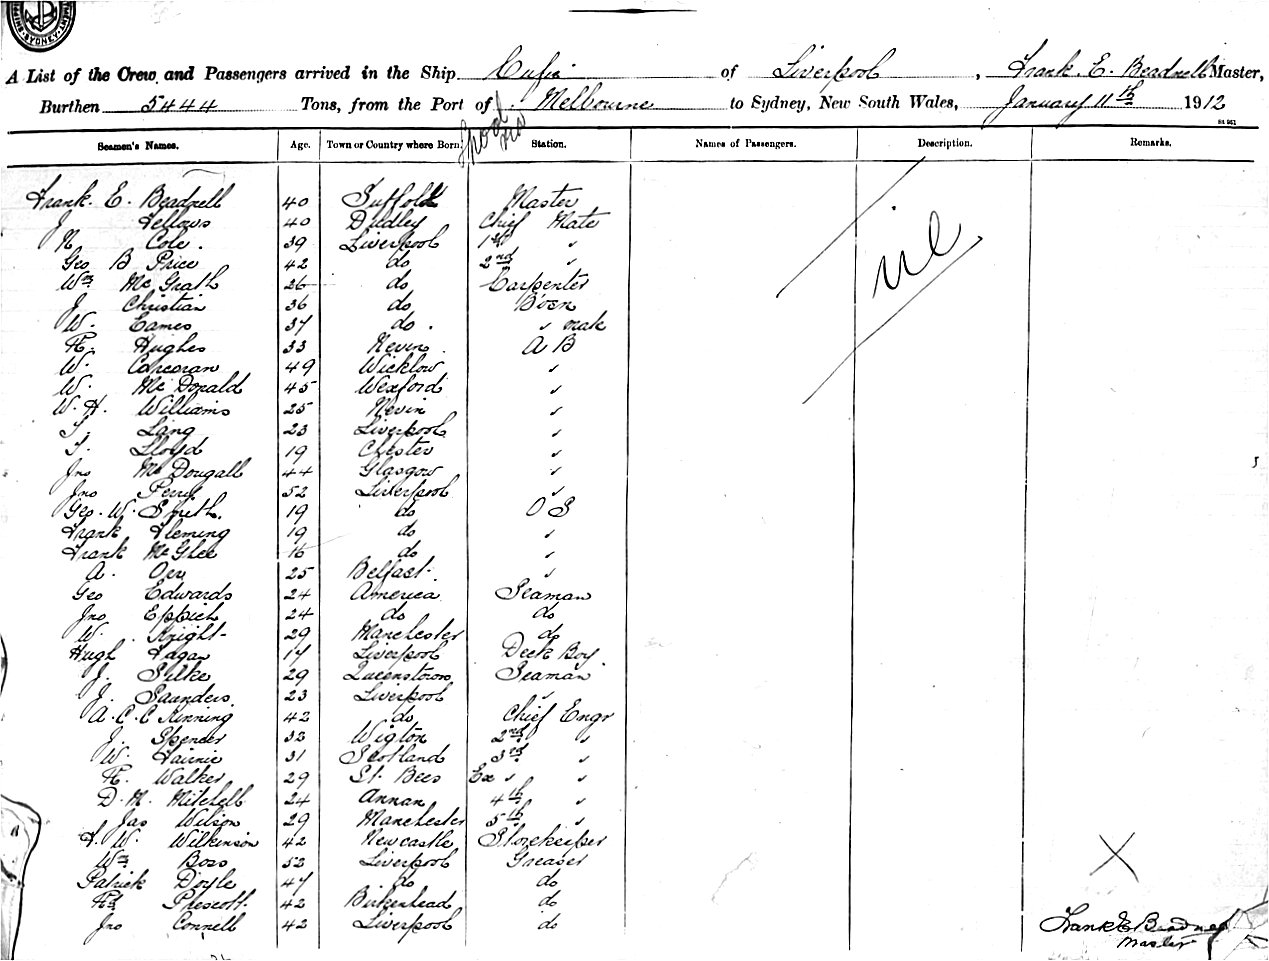 SYDNEY
A List of the Crew and Passengers arrived in the Ship Cufic of Liverpool, Frank. E. Beadnell Master,
Burthen 5444 Tons, from the Port of Melbourne to Sydney, New South Wales, January 11th 1912
Seamen's Names. Age. Town or Country where Born. Station. Names of Passengers. Description. Remarks.
Frank. E. Beadnell 40 Suffolk Master
J Fellows 40 Dudley Chief Mate
N Cole. 39 Liverpool 1st "
Geo B Price 42 do 2nd " nil
Wm Mc Grath 26 do Carpenter
J Christian 36 do Bosn
W. Eames 37 do. " mate
H. Hughes 33 Nevin. A B
W. Corcoran 49 Wicklow "
W. Mc Donald 45 Wexford "
W. H. Williams 25 Nevin "
T. Lang 23 Liverpool "
T. Lloyd 19 Chester "
Jno Mc Dougall 44 Glasgow "
Jno Perry 52 Liverpool "
Geo. W. Smith. 19 do O S
Frank Fleming 19 do "
Frank Mc Ghee 16 do "
A. Orr 25 Belfast. "
Geo Edwards 24 America Seaman
Jno Eppich 24 do do
W. Knight 29 Manchester do
Hugh Fagan 17 Liverpool Deck Boy.
J. Silke 29 Queenstown Seaman
J. Saunders. 23 Liverpool "
A. C. C Kinning 42 do Chief Engr
J. Spencer 32 Wigton 2nd "
W. Fairnie 31 Scotland 3rd "
H. Walker 29 St. Bees Ex " "
D. M. Mitchell 24 Annan 4th "
Jas Wilson 29 Manchester 5th "
H. W. Wilkinson 42 Newcastle Storekeeper
Wm Boss 52 Liverpool Greaser
Patrick Doyle 47 do do
Prescott. 42 Birkenhead do
Jno Connell 42 Liverpool do
Frank E Beadnell
Master